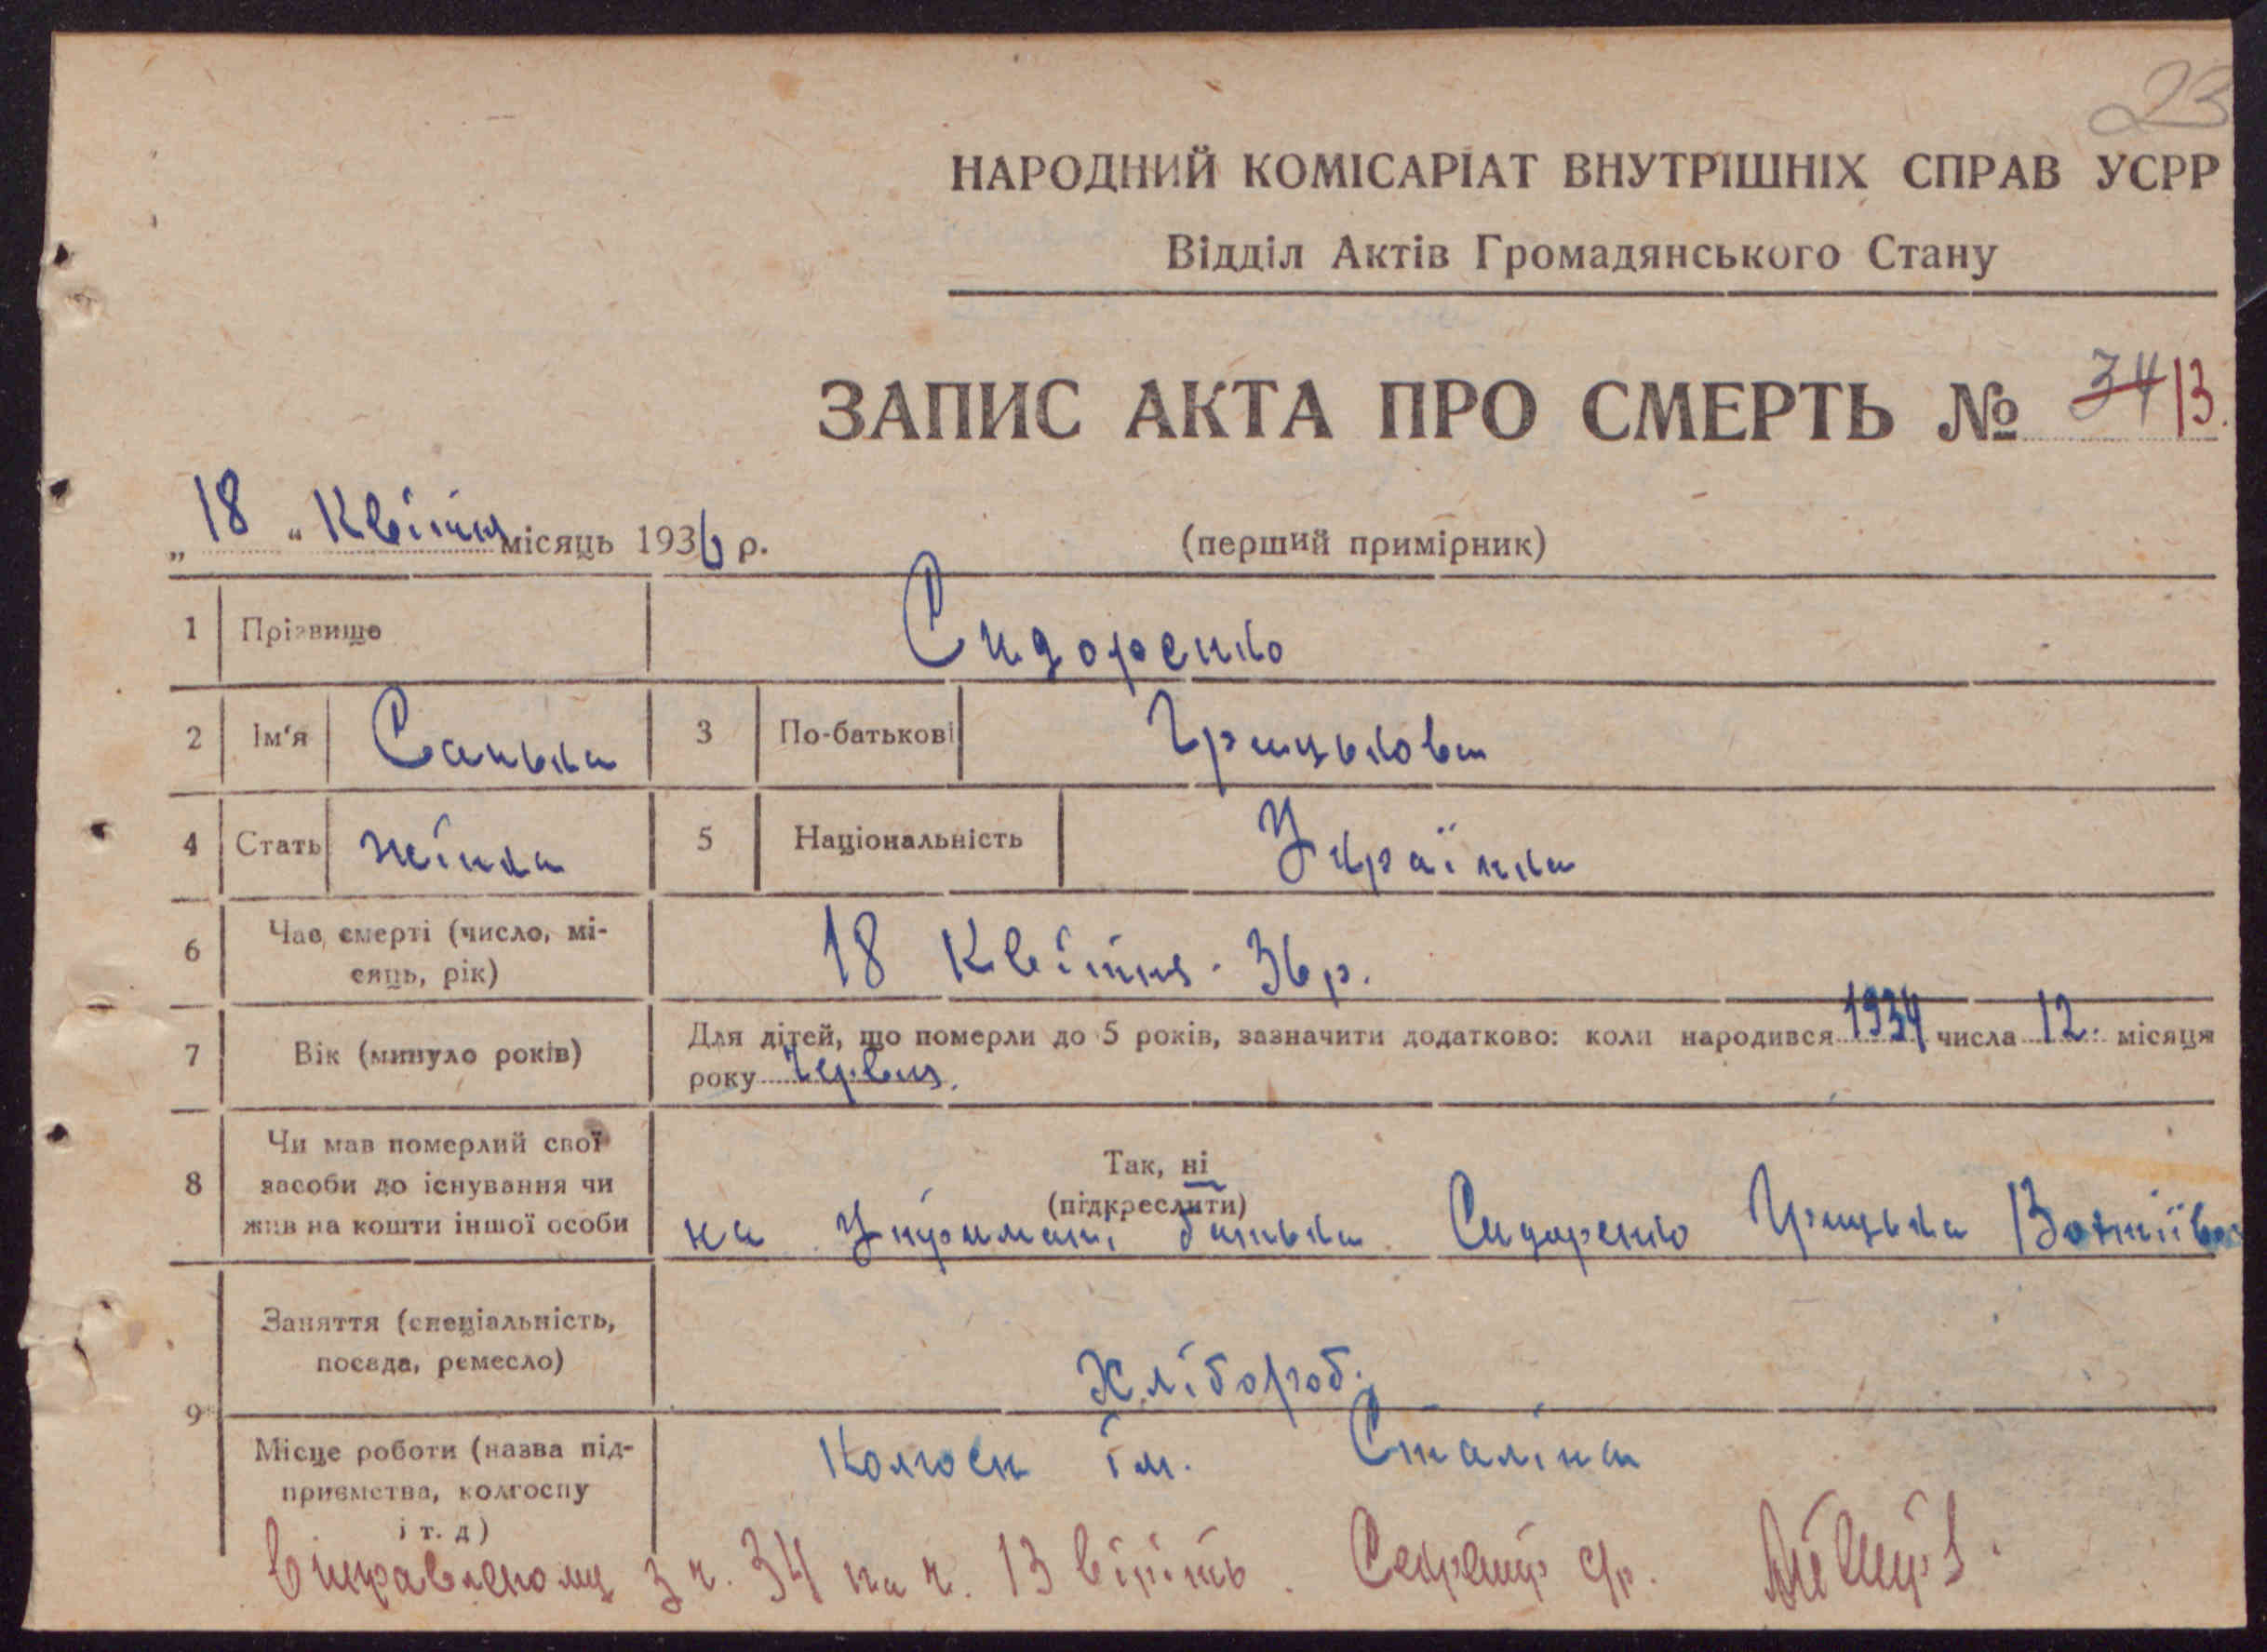 23
НАРОДНИЙ КОМІСАРІАТ ВНУТРІШНІХ СПРАВ УСРР
Відділ Актів Громадянського Стану
ЗАПИС АКТА ПРО СМЕРТЬ № 34 13.
„18“ Квітня місяць 1936 р. (перший примірник)
1 Прізвище Сидоренко
2 Ім'я Санька 3 По-батькові Грицькова
4 Стать жінка 5 Національність Українка
6 Час смерті (число, мі-
сяць, рік) 18 Квітня. 36 р.
7 Вік (минуло років) Для дітей, що померли до 5 років, зазначити додатково: коли народився 1934 числа 12. місяця
року Червня.
8 Чи мав померлий свої
засоби до існування чи
жив на кошти іншої особи
Так, ні
(підкреслити)
на Утримані батька Сидоренко Грицька
9 Заняття (спеціальність,
посада, ремесло) Хлібороб.
Місце роботи (назва під-
приємства, колгоспу
і т. д) Колгосп Ім. Сталіна
Виправленому з ч. 34 на ч. 13 вірить. Секретр с/р.